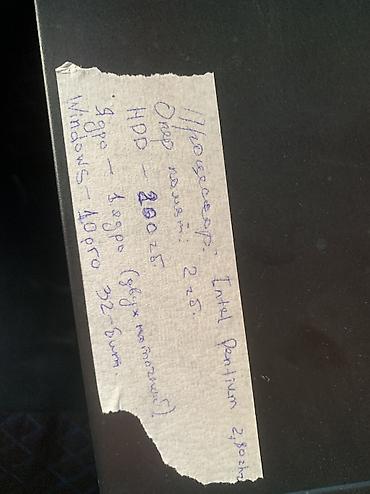 Процессор: Intel Pentium 2,80ghz
Опер памят: 2гб.
HDD - 200гб
Ядро - 1 ядро (двух поточный)
Windows - 10 pro 32-бит.